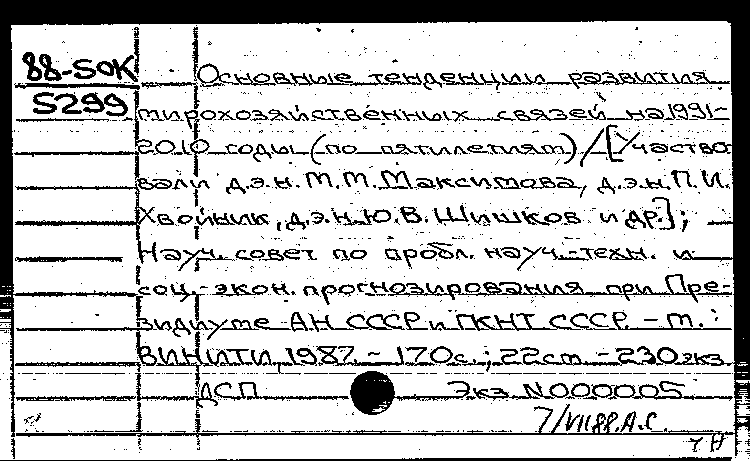 88-SOK
5299
Основные тенденции развития
мирохозяйственных связей на 1991-
2010 годы (по пятилетиям) / [Участво
вали д.э.н. М.М. Максимова, д.э.н. П.И.
Хвойник, д.э.н. Ю.В. Шишков и др.];
Науч. совет по пробл. науч.-техн. и
соц.-экон. прогнозирования при Пре-
зидиуме АН СССР и ГКНТ СССР. - М.:
ВИНИТИ, 1987. - 170с.; 22см. - 230экз
ДСП Экз. N000005
7/VII88. А.С.